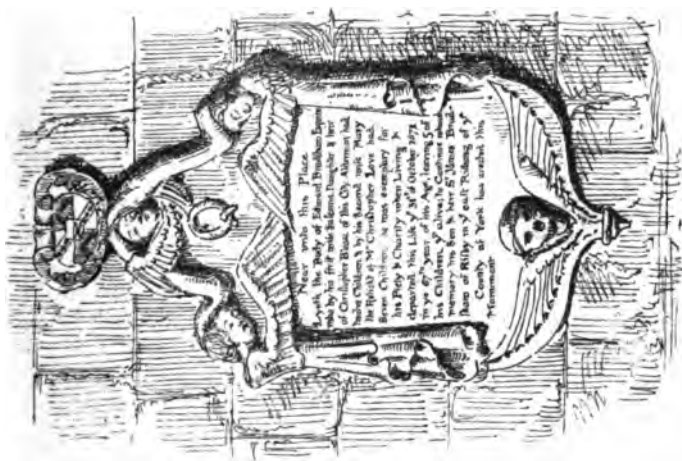 Near unto this Place
Lyeth the Body of Edmund Bradshaw Esquire
who by his first wife Susanna Daughter & heir
of Christopher Blease of this City Alderman had
Children & by his Second wife Mary
the Relict of Mr Christopher Love had
Seven Children, he was exemplary for
his Piety & Charity when Living &
departed this Life ye of October 1671
in ye 67th year of his Age, leaving 3 of
his Children, alive, to Continue whose
memory his Son & Heir Sr James Brad-
shaw of Risby in ye east Rideing of ye
County of York has erected this
Monument